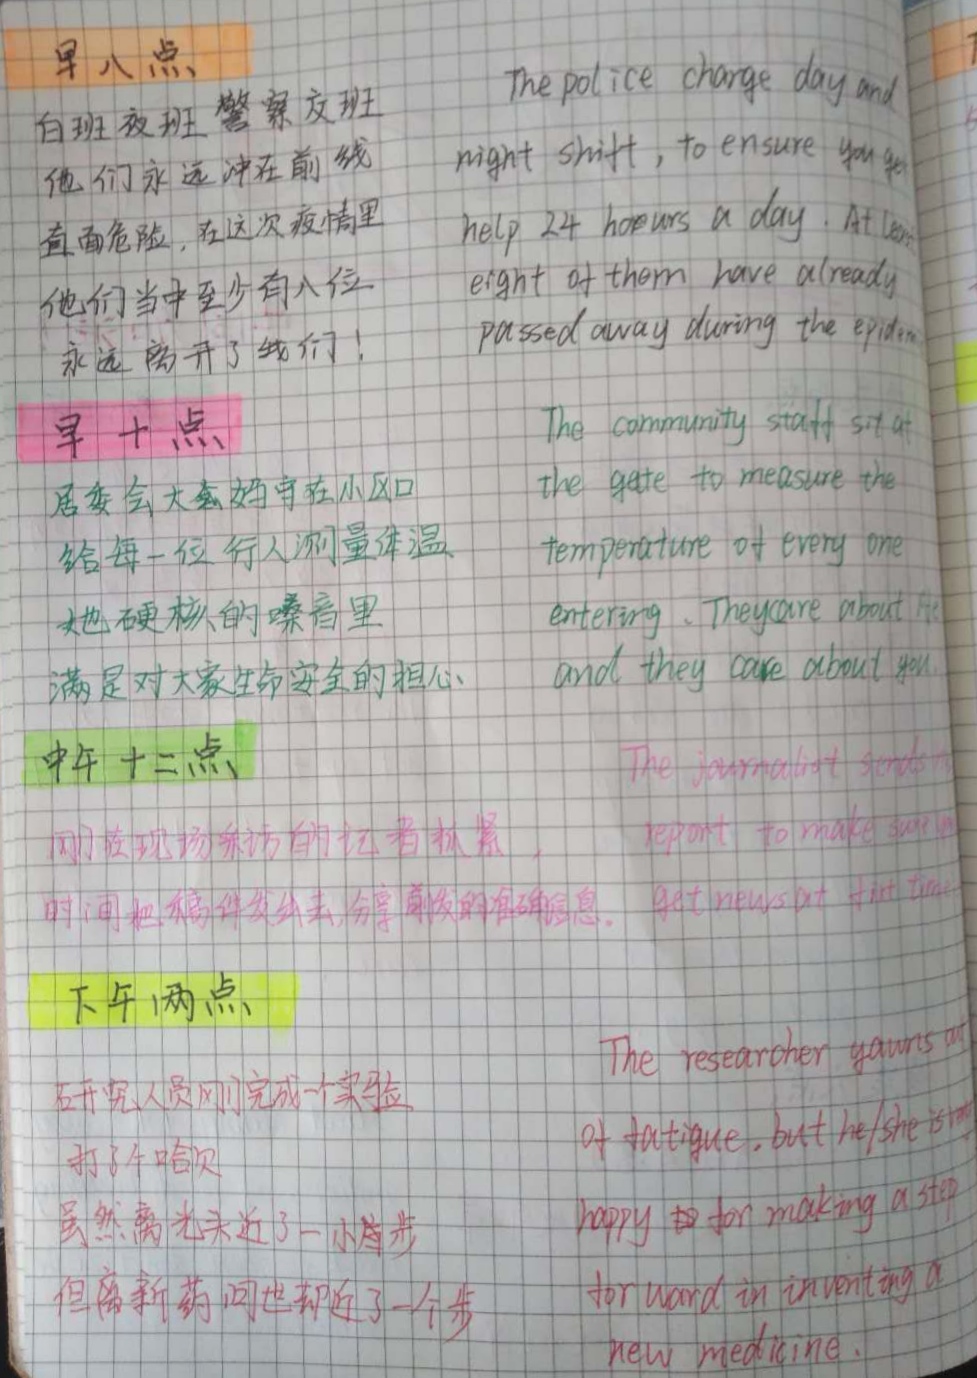 早八点
白班夜班警察交班
他们永远冲在前线
直面危险，在这次疫情里
他们当中至少有八位
永远离开了我们！
The police charge day and
night shift, to ensure you
help 24 hours a day. At
eight of them have already
passed away during the
早十点
居委会大妈守在小区口
给每一位行人测量体温
她硬核的嗓音里
满是对大家生命安全的担心
The community staff sit at
the gate to measure the
temperature of every one
entering. They care about
and they care about you.
中午十二点
刚在现场采访的记者抓紧，
时间把稿件发出去，分享的准确信息。
The journalist sends
report to make sure
get news at first time
下午两点
研究人员刚刚完成一个实验
打了个哈欠
虽然离光头近了一小步
但离新药问世却近了一个步
The researcher yawns out
of fatigue. but he/she is
happy for making a step
forward in inventing a
new medicine.